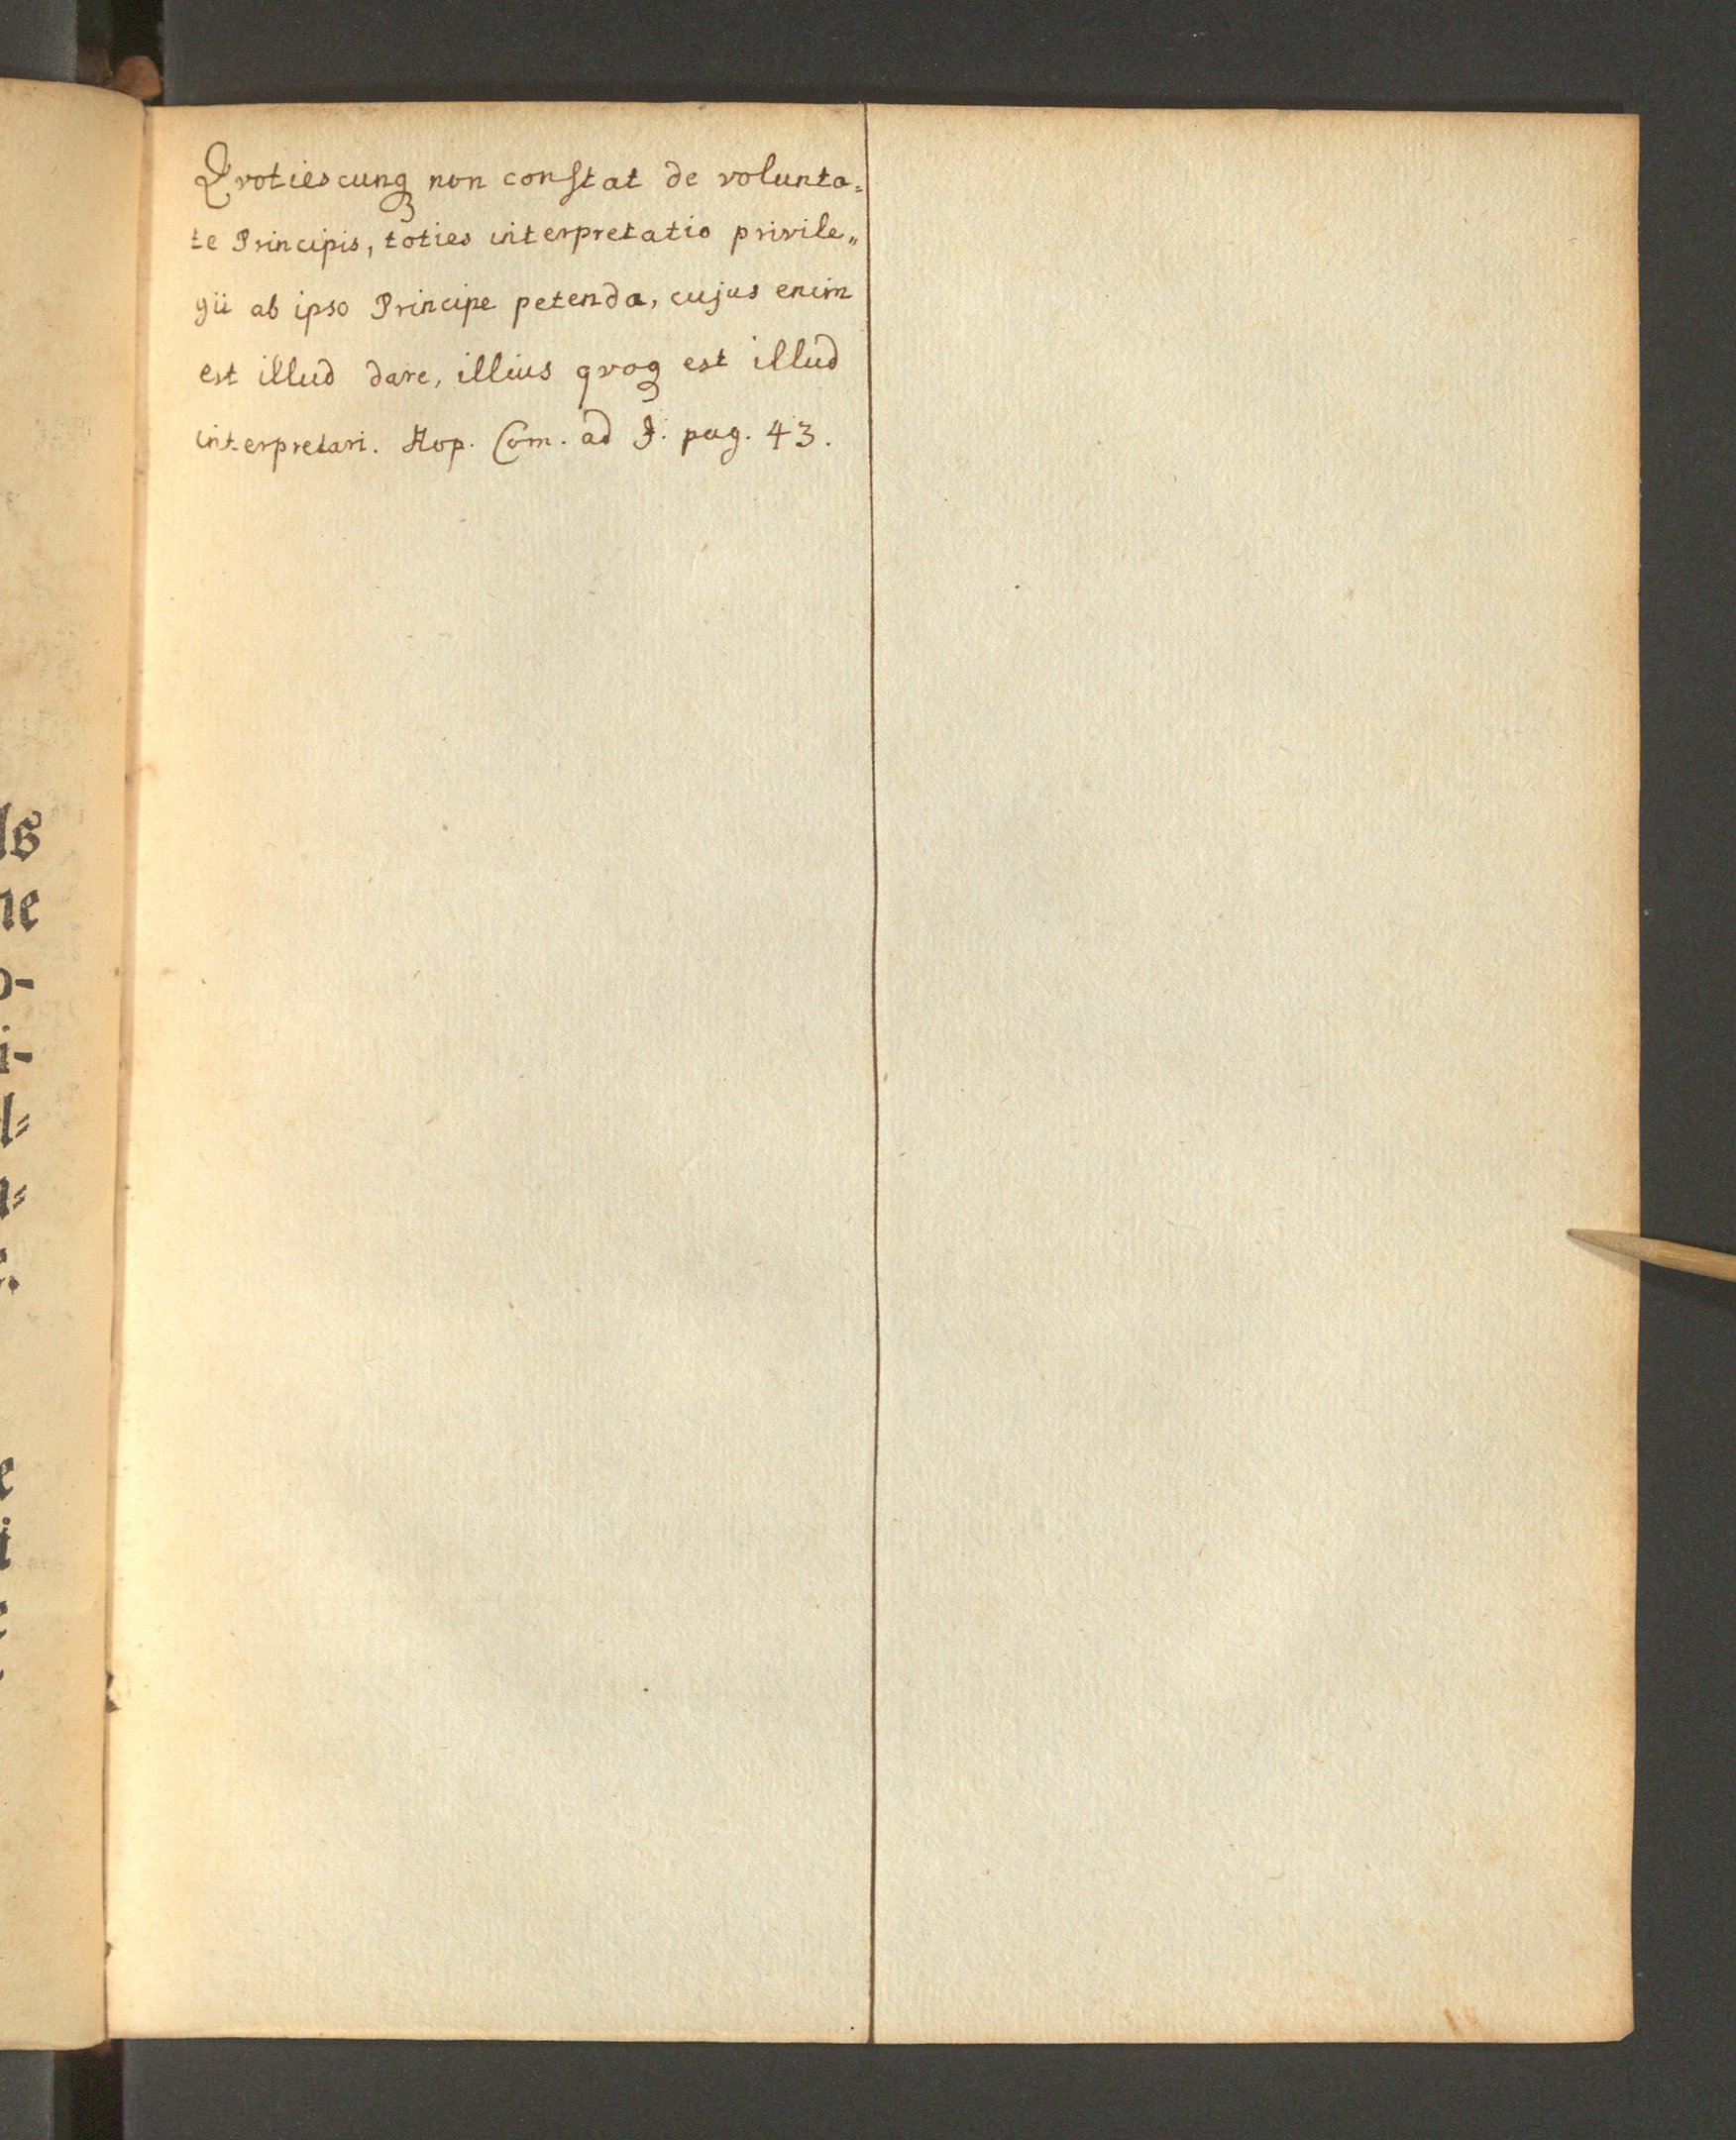 Qvotiescunq; non constat de volunta=
te Principis, toties interpretatio privile„
gii ab ipso Principe petenda, cujus enim
est illud dare, illius qvoq; est illud
interpretari. Hop. Com. ad J. pag. 43.
ls
ne
o-
i-
l=